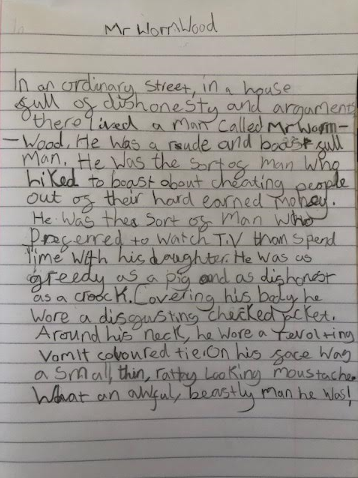 Mr WormWood
In an ordinary street, in a house
full of dishonesty and arguments
there lived a man called Mr Worm-
-Wood. He was a rude and boastfull
Man. He was the sort of man who
liked to boast about cheating people
out of their hard earned money.
He was the sort of man who
Preferred to watch T.V than spend
time with his daughter. He was as
greedy as a pig and as dishonest
as a crook. Covering his body he
wore a disgusting checked jacket.
Around his neck, he wore a revolting
vomit coloured tie. On his face was
a small, thin, ratty looking moustache.
What an awful, beastly man he was!